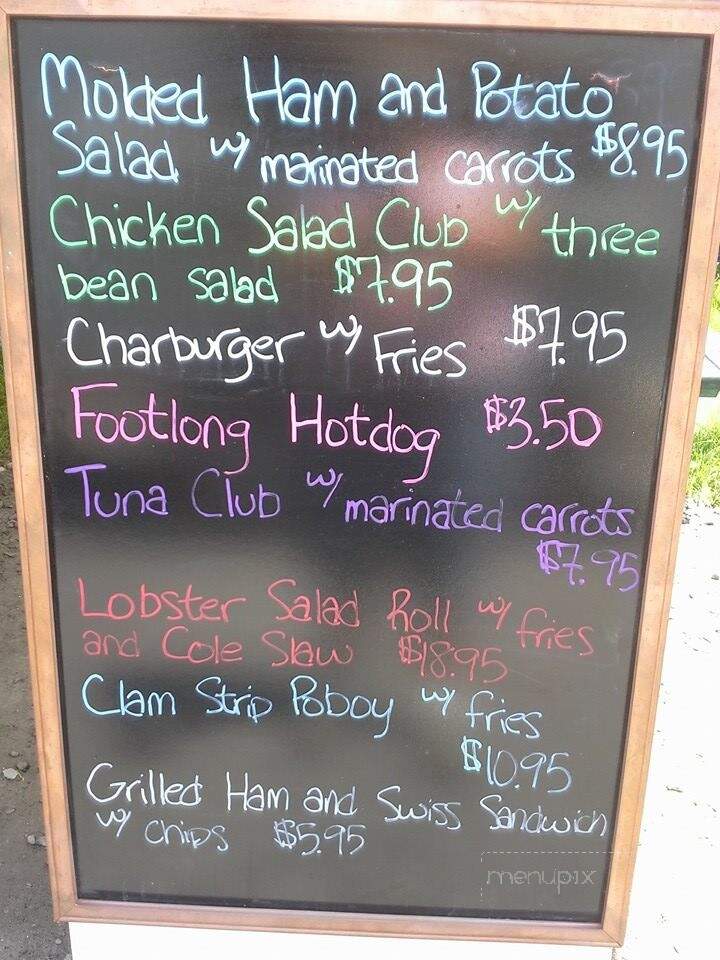 Molded Ham and Potato
Salad w/ marinated carrots $8.95
Chicken Salad Club w/ three
bean salad $7.95
Charburger w/ Fries $7.95
Footlong Hotdog $3.50
Tuna Club w/ marinated carrots
$7.95
Lobster Salad Roll w/ fries
and Cole Slaw $18.95
Clam Strip Poboy w/ fries
$10.95
Grilled Ham and Swiss Sandwich
w/ Chips $5.95
menupix